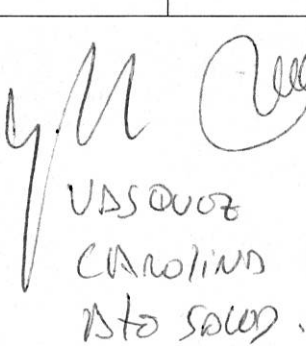 VASQUEZ
CAROLINA
Dto SALUD.